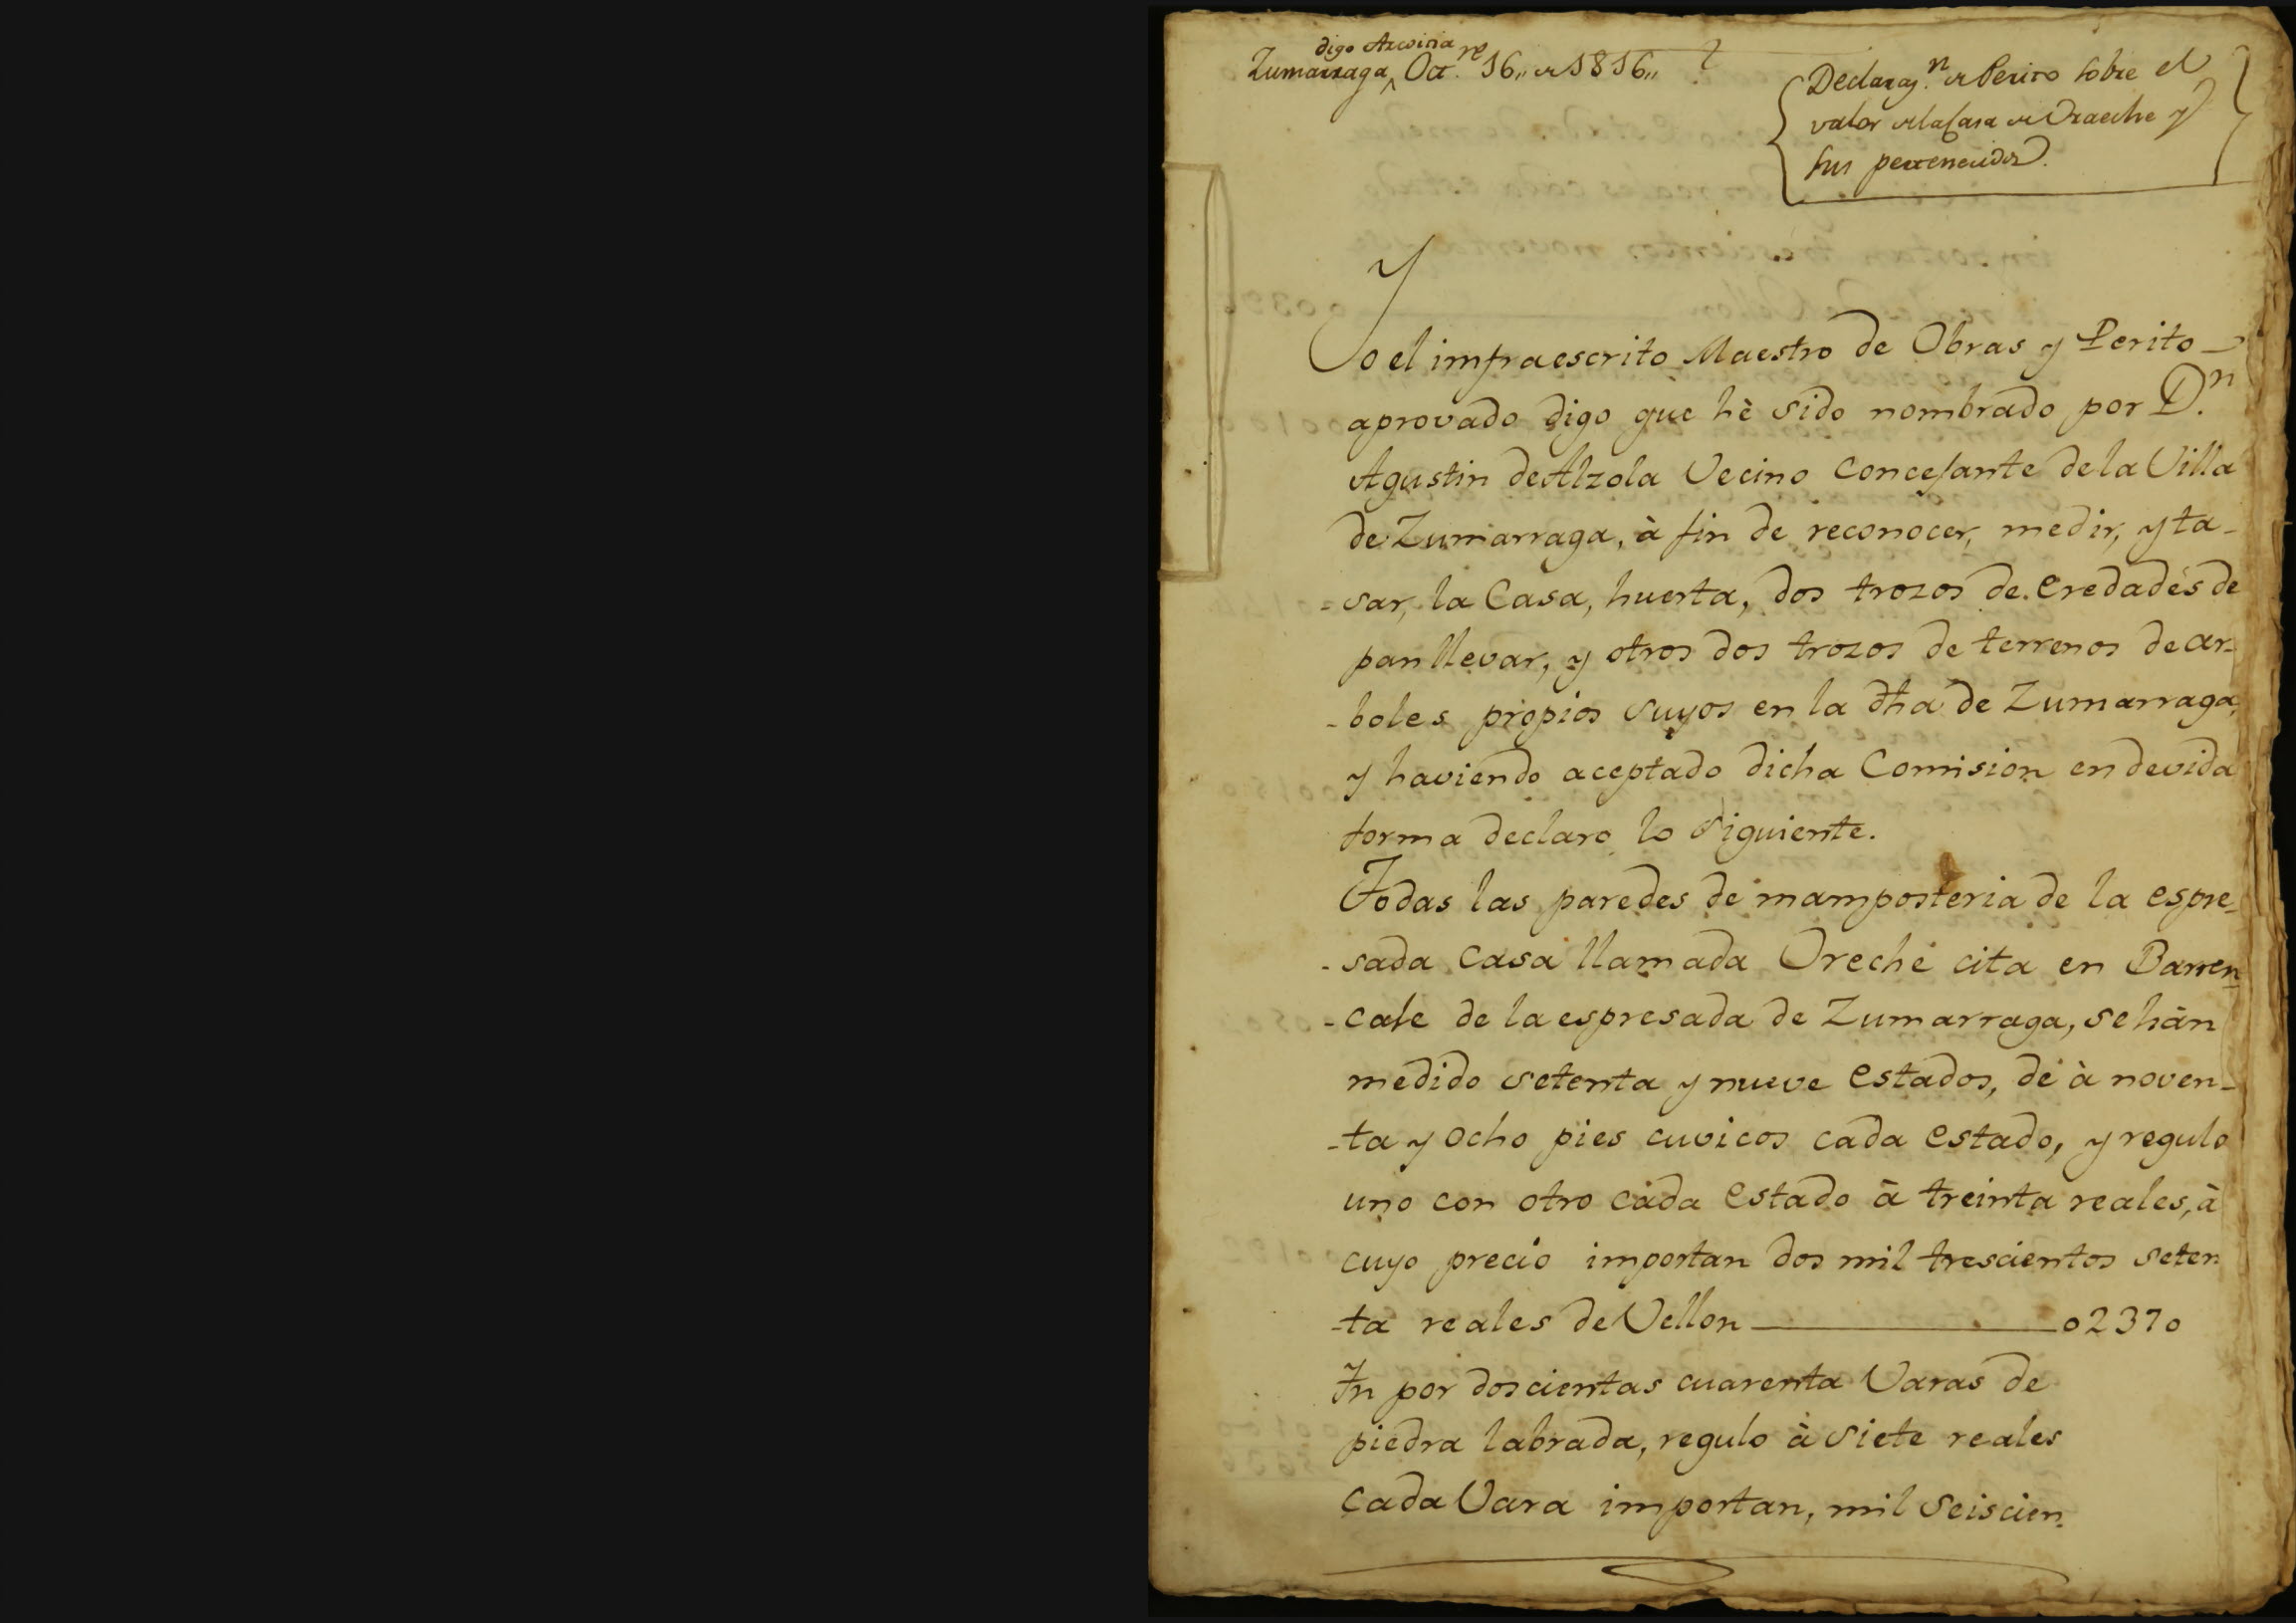 digo Azcoitia
Zumarraga, Oct.re 16,, de 1816,,
Declaraz.n de Perito sobre el
valor de la Casa de Oraeche y
sus pertenecidos.
Yo el impraescrito Maestro de Obras y Perito
aprovado digo que hè sido nombrado por D.n
Agustin de Alzola Vecino Concejante de la Villa
de Zumarraga, à fin de reconocer, medir, y ta-
-sar, la Casa, huerta, dos trozos de eredades de
pan llevar, y otros dos trozos de terrenos de ar-
-boles propios suyos en la dha de Zumarraga,
y haviendo aceptado dicha Comision en devida
forma declaro lo siguiente.
Todas las paredes de mamposteria de la espre-
-sada Casa llamada Oreche cita en Barren-
-cale de la espresada de Zumarraga, se hàn
medido setenta y nueve estados, de à noven-
-ta y ocho pies cuvicos cada estado, y regulo
uno con otro cada estado à treinta reales, à
cuyo precio importan dos mil trescientos seten
-ta reales de Vellon 02370
Ytn por doscientas cuarenta Varas de
piedra labrada, regulo à siete reales
cada Vara importan, mil seiscien-